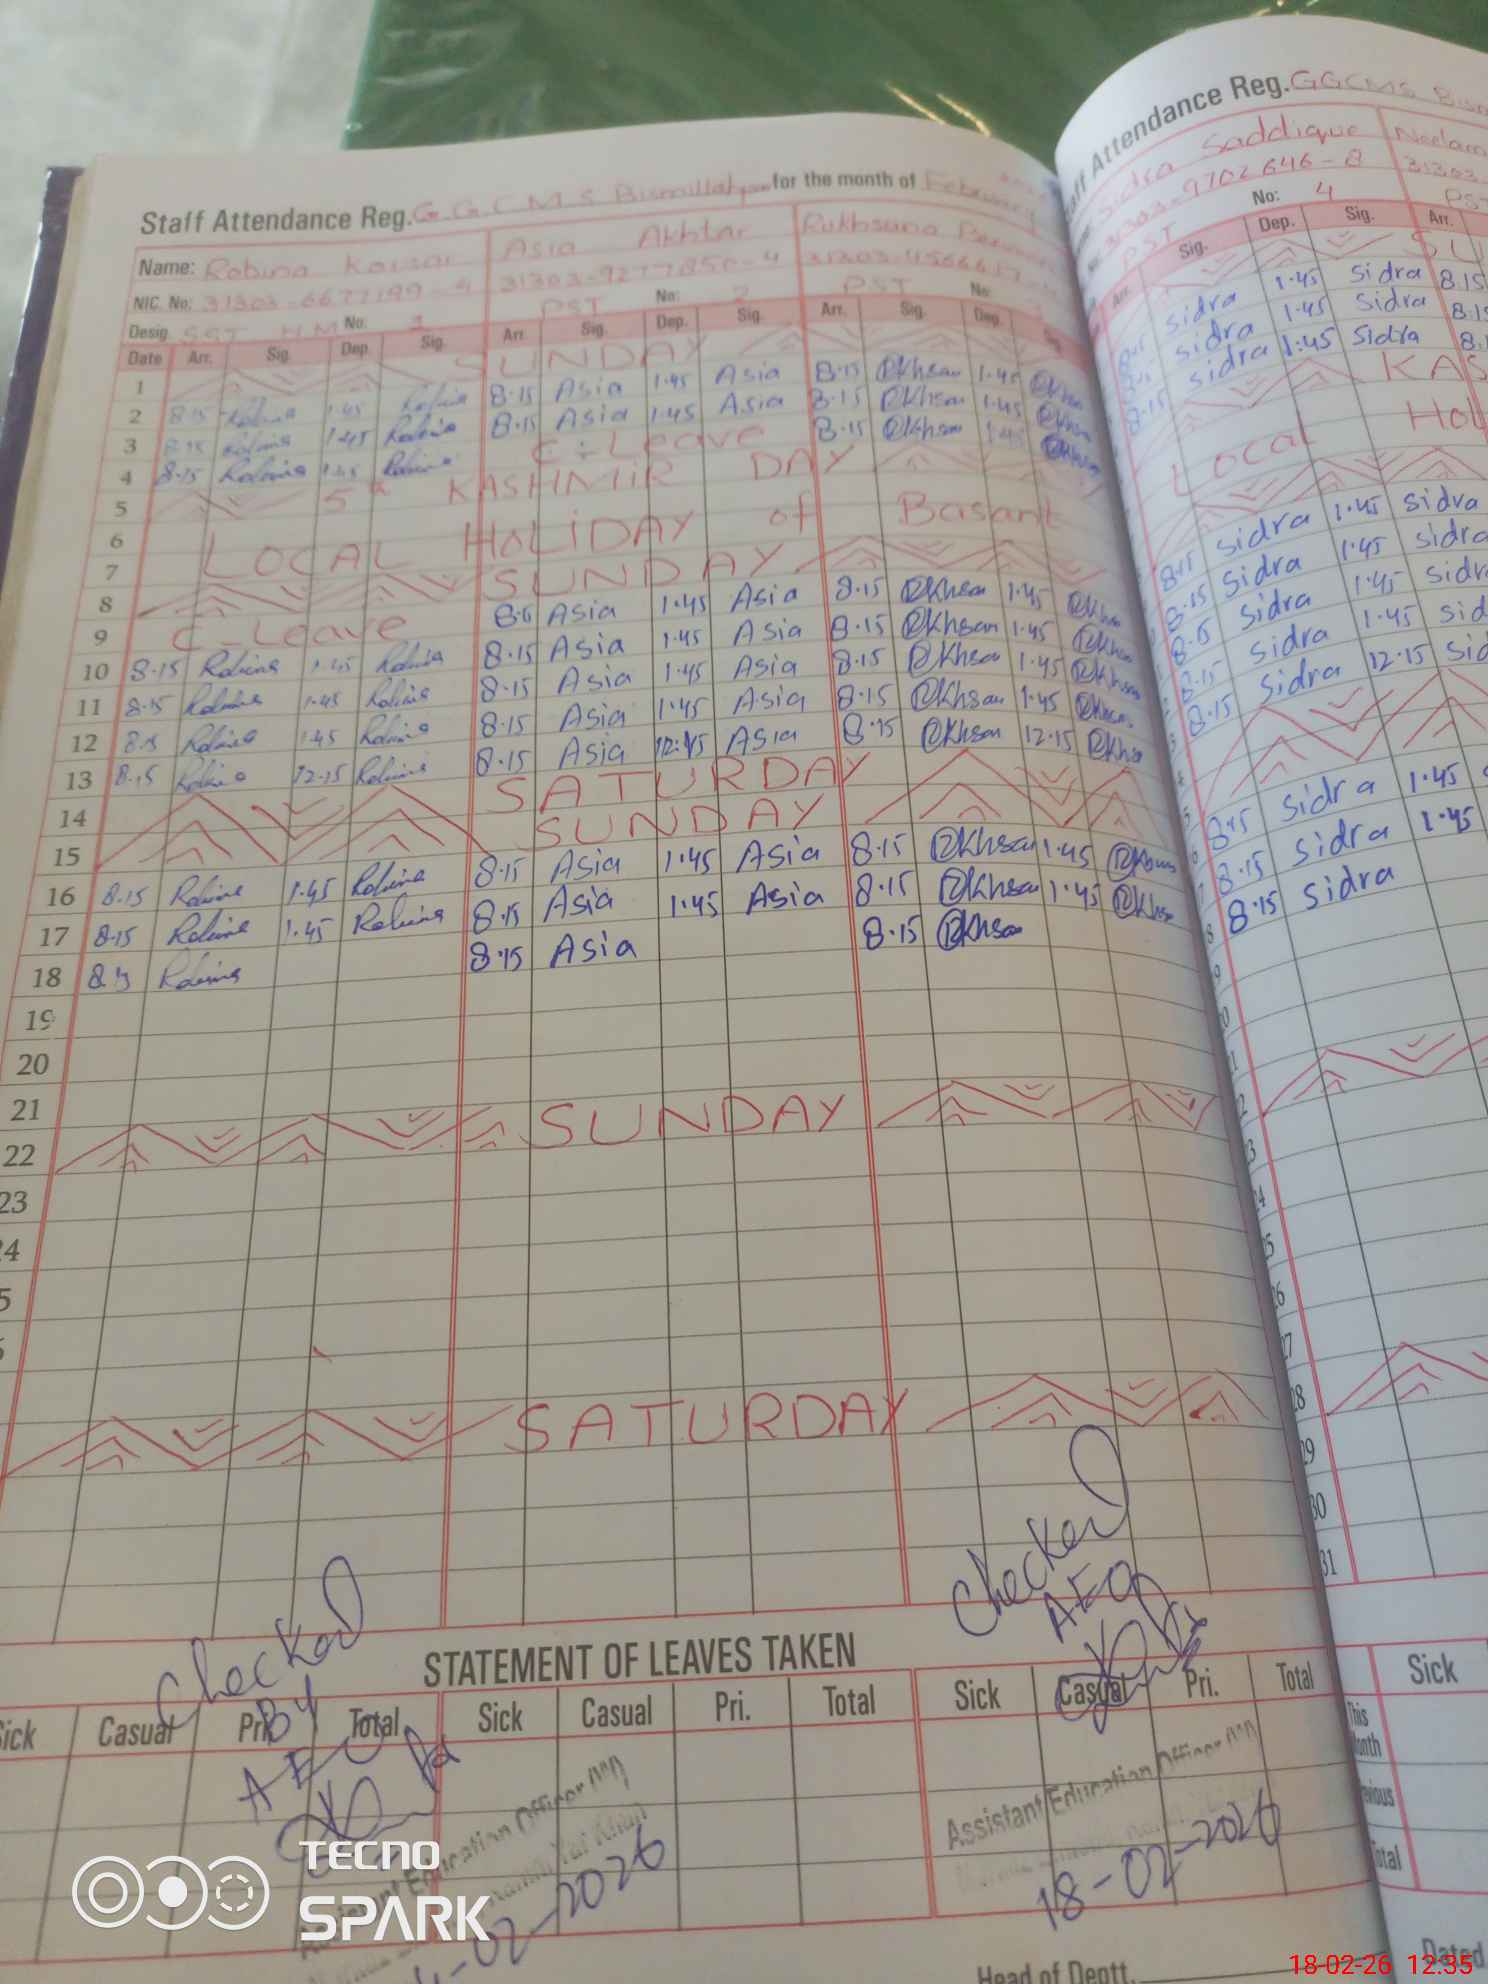 Staff Attendance Reg. G G C M S Bismillahpur for the month of February
Name: Robina Kousar Asia Akhtar Rukhsana
NIC. No: 31303-9277850-4
Desig. SST H.M No: 1 PST No: 2 PST No:
Date Arr. Sig. Dep. Sig. Arr. Sig. Dep. Sig. Arr. Sig. Dep. Sig.
1 SUNDAY
2 8.15 Robina 1.45 Robina 8.15 Asia 1.45 Asia 8.15 Rkhsan 1.45 Rkhsan
3 8.15 Robina 1.45 Robina 8.15 Asia 1.45 Asia 8.15 Rkhsan 1.45 Rkhsan
4 8.15 Robina 1.45 Robina C-Leave 8.15 Rkhsan 1.45 Rkhsan
5 5th KASHMIR DAY
6 LOCAL HOLIDAY of Basant
7
8 SUNDAY
9 C-Leave 8.15 Asia 1.45 Asia 8.15 Rkhsan 1.45 Rkhsan
10 8.15 Robina 1.45 Robina 8.15 Asia 1.45 Asia 8.15 Rkhsan 1.45 Rkhsan
11 8.15 Robina 1.45 Robina 8.15 Asia 1.45 Asia 8.15 Rkhsan 1.45 Rkhsan
12 8.15 Robina 1.45 Robina 8.15 Asia 1.45 Asia 8.15 Rkhsan 1.45 Rkhsan
13 8.15 Robina 12.15 Robina 8.15 Asia Asia 8.15 Rkhsan 12.15 Rkhsan
14 SATURDAY
15 SUNDAY
16 8.15 Robina 1.45 Robina 8.15 Asia 1.45 Asia 8.15 Rkhsan 1.45 Rkhsan
17 8.15 Robina 1.45 Robina 8.15 Asia 1.45 Asia 8.15 Rkhsan 1.45 Rkhsan
18 8.15 Robina 8.15 Asia 8.15 Rkhsan
19
20
21
22 SUNDAY
23
SATURDAY
Checked By AEO
Checked AEO
STATEMENT OF LEAVES TAKEN
Sick Casual Pri. Total Sick Casual Pri. Total Sick Casual Pri. Total
Assistant Education Officer
Assistant Education Officer
02-2026
18-02-2026
Head of Deptt.
Staff Attendance Reg. GGCMS
Sidra Saddique Neelam
31303-9702646-8 31303
PST No: 4 PST
Arr. Sig. Dep. Sig. Arr.
8.15 Sidra 1.45 Sidra 8.15
8.15 Sidra 1.45 Sidra
8.15 Sidra 1.45 Sidra
KAS
Local Hol
8.15 Sidra 1.45 Sidra
8.15 Sidra 1.45 Sidra
8.15 Sidra 1.45 Sidra
8.15 Sidra 1.45
8.15 Sidra 12.15
8.15 Sidra 1.45
8.15 Sidra 1.45
8.15 Sidra
28
29
30
31
Sick
This Month
Total
Dated
TECNO
SPARK
18-02-26 12:35